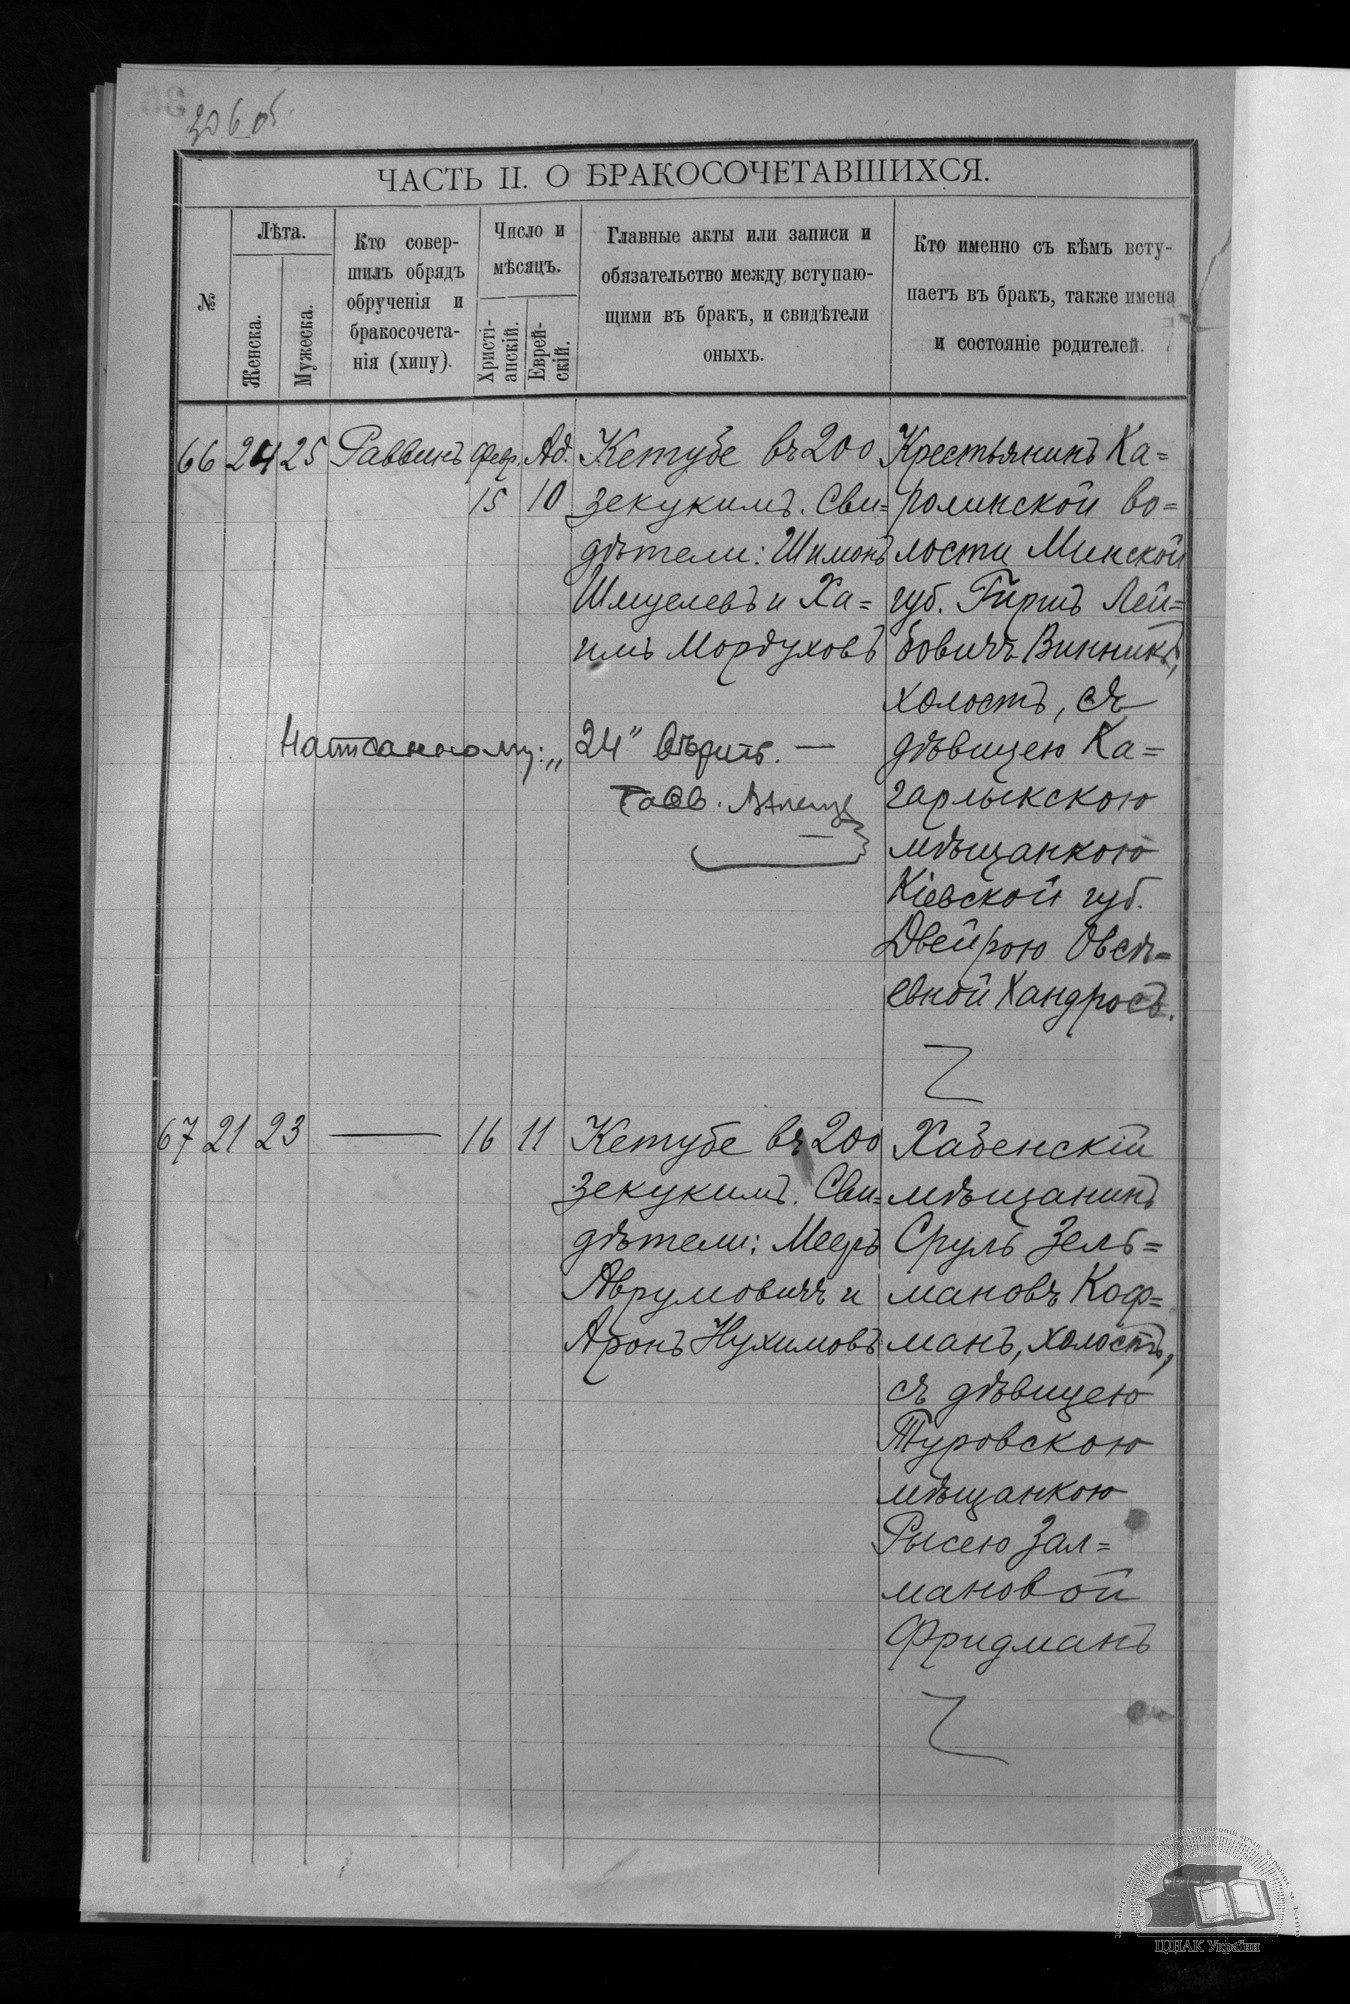 ЧАСТЬ II. О БРАКОСОЧЕТАВШИХСЯ.
№
Лѣта.
Женска.
Мужеска.
Кто совер-
шилъ обрядъ
обрученія и
бракосочета-
нія (хипу).
Число и
мѣсяцъ.
Христі-
анскій.
Еврей-
скій.
Главные акты или записи и
обязательство между вступаю-
щими въ бракъ, и свидѣтели
оныхъ.
Кто именно съ кѣмъ всту-
паетъ въ бракъ, также имена
и состояніе родителей.
66 24 25 Раввинъ Февр. 15 Ад. 10
Кетубе въ 200
зекукимъ. Сви=
дѣтели: Шимонъ
Шмуелевъ и Ха=
имъ Мордуховъ
Написанному: „24" вѣрить. —
Равв.
Крестьянинъ Ка=
ролинской во=
лости Минской
губ. Гиршъ Лей=
бовичъ Винникъ,
холостъ, съ
дѣвицею Ка=
гарлыкскою
мѣщанкою
Кіевской губ.
Двейрою Овсѣ=
евной Хандросъ.
67 21 23 — 16 11
Кетубе въ 200
зекукимъ. Сви=
дѣтели: Мееръ
Аврумовичъ и
Аронъ Нухимовъ
Хабенскій
мѣщанинъ
Сруль Зель=
мановъ Коф=
манъ, холостъ,
съ дѣвицею
Туровскою
мѣщанкою
Рысею Зал=
мановой
Фридманъ
ЦДІАК України